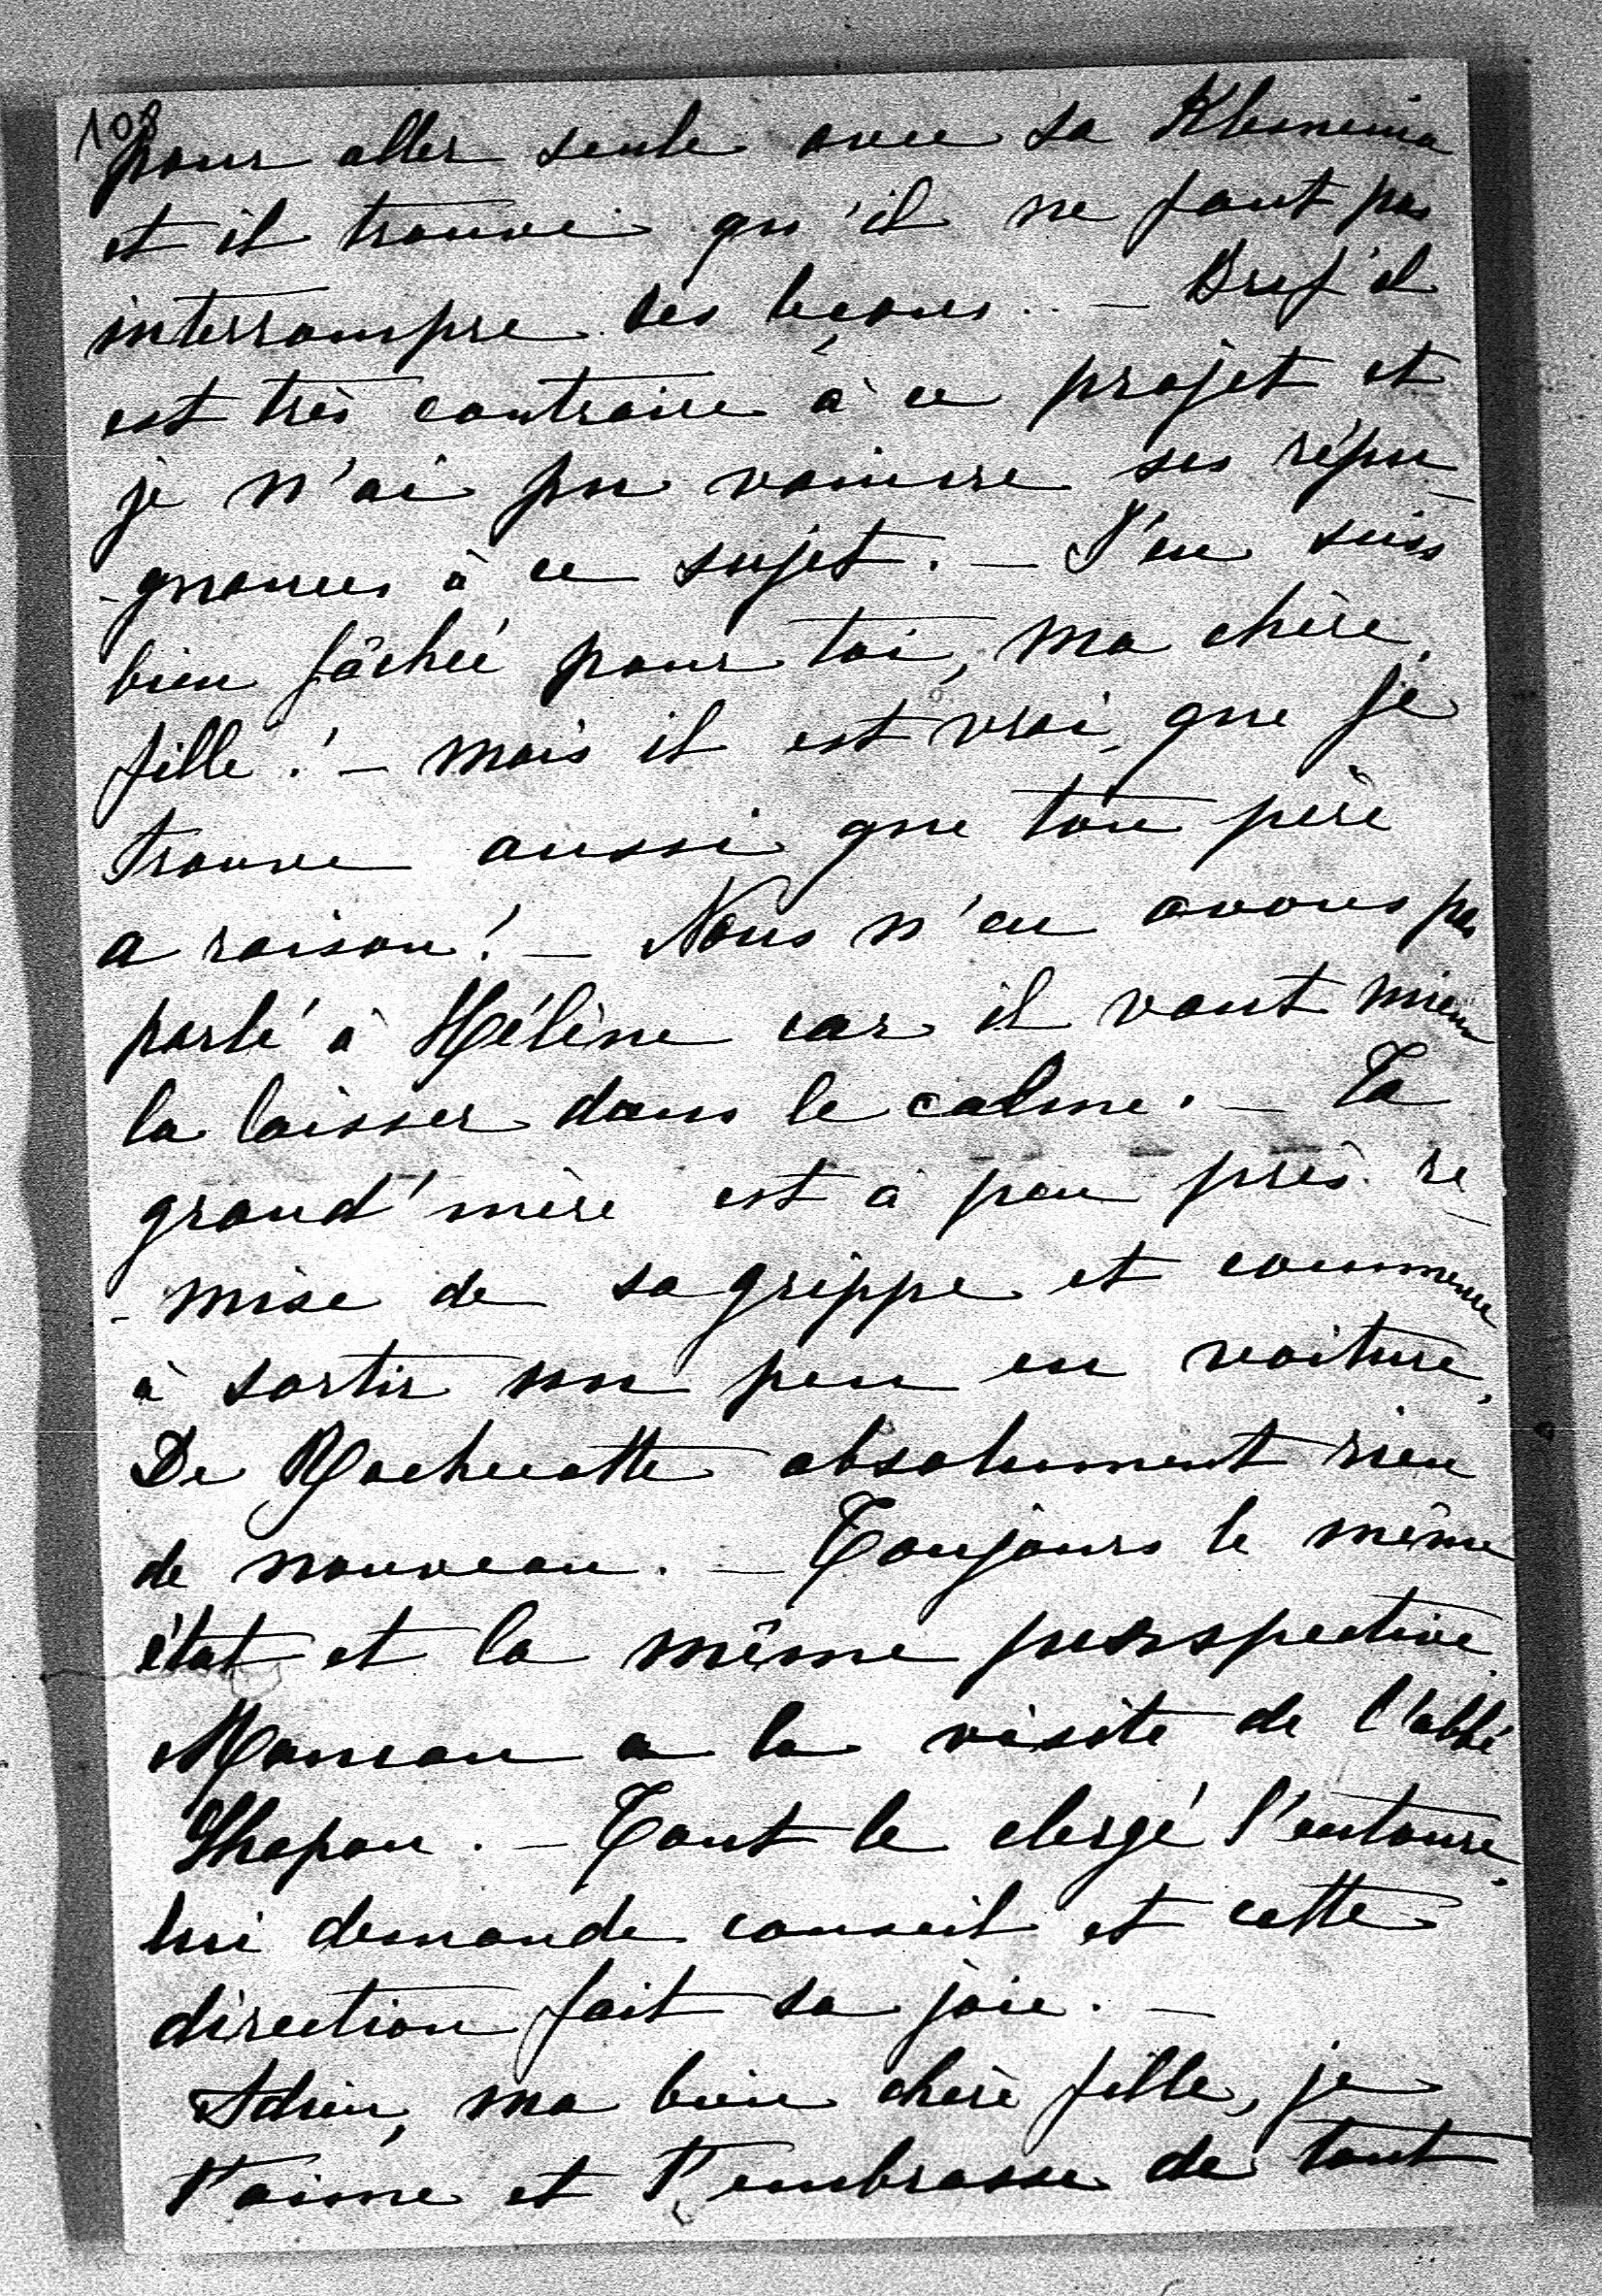 108
pour aller seule avec sa
et il trouve qu'il ne faut pas
interrompre ses leçons.. — Bref il
est très contraire à ce projet et
je n'ai pu vaincre ses répu-
-gnances à ce sujet. — J'en suis
bien fâchée pour toi, ma chère
fille! — mais il est vrai que je
trouve aussi que ton père
a raison! — Nous n'en avons pas
parlé à Hélène car il vaut mieux
la laisser dans le calme. — Ta
grand'mère est à peu près re-
-mise de sa grippe et commence
à sortir un peu en voiture,
De Rochecotte absolument rien
de nouveau. — Toujours le même
état et la même perspective
Maman a la visite de l'abbé
Chapon. — Tout le clergé l'entoure,
lui demande conseil et cette
direction fait sa joie. —
Adieu, ma bien chère fille, je
t'aime et t'embrasse de tout